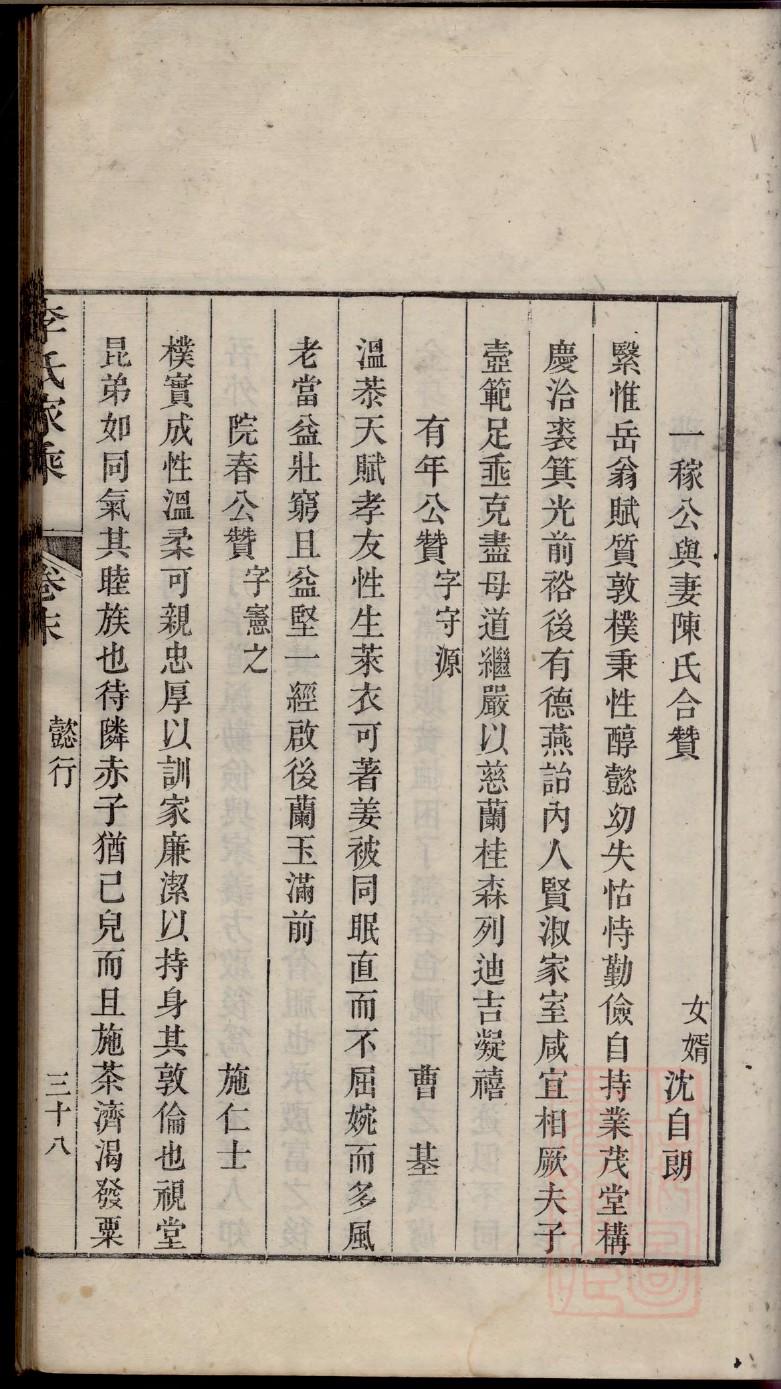 一稼公與妻陳氏合贊 女婿沈自朗
緊惟岳翁賦質敦樸秉性醇懿幼失怙恃勤儉自持業茂堂構
慶洽裘箕光前裕後有德燕詒內人賢淑家室咸宜相厥夫子
壼範足垂克盡母道繼嚴以慈蘭桂森列迪吉凝禧
有年公贊 字守源 曹基
溫恭天賦孝友性生萊衣可著姜被同眠直而不屈婉而多風
老當益壯窮且益堅一經啟後蘭玉滿前
院春公贊 字憲之 施仁士
樸實成性溫柔可親忠厚以訓家廉潔以持身其敦倫也視堂
昆弟如同氣其睦族也待隣赤子猶已兒而且施茶濟渴發粟
李氏家乘 卷末 懿行 三十八